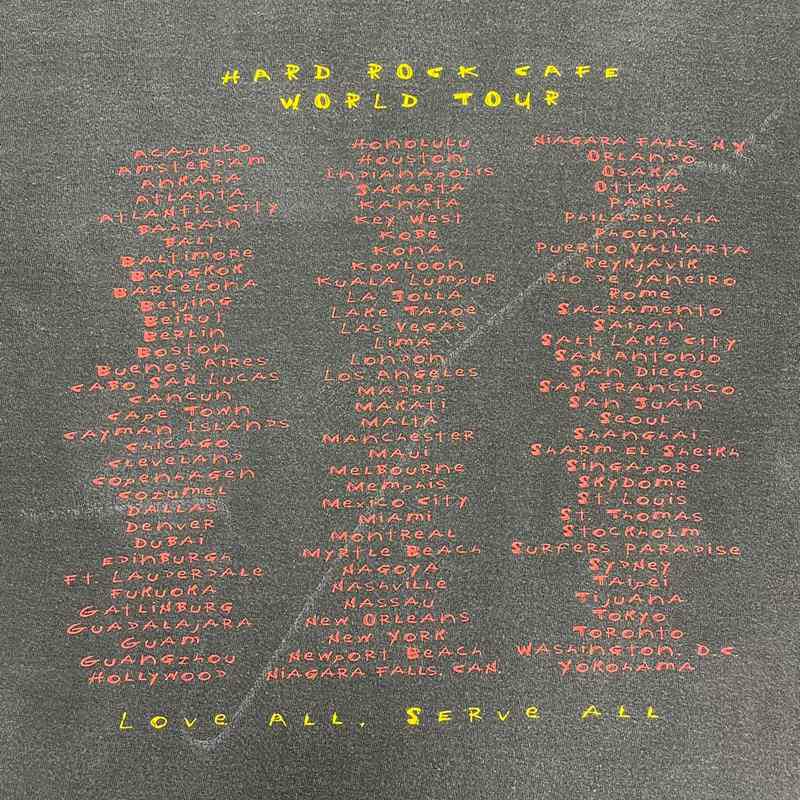 HARD ROCK CAFE
WORLD TOUR
ACAPULCO
AMSTERDAM
ANKARA
ATLANTA
ATLANTIC CITY
BAHRAIN
BALI
BALTIMORE
BANGKOK
BARCELONA
BEIJING
BEIRUT
BERLIN
BOSTON
BUENOS AIRES
CABO SAN LUCAS
CANCUN
CAPE TOWN
CAYMAN ISLANDS
CHICAGO
CLEVELAND
COPENHAGEN
COZUMEL
DALLAS
DENVER
DUBAI
EDINBURGH
FT. LAUDERDALE
FUKUOKA
GATLINBURG
GUADALAJARA
GUAM
GUANGZHOU
HOLLYWOOD
HONOLULU
HOUSTON
INDIANAPOLIS
JAKARTA
KANATA
KEY WEST
KOBE
KONA
KOWLOON
KUALA LUMPUR
LA JOLLA
LAKE TAHOE
LAS VEGAS
LIMA
LONDON
LOS ANGELES
MADRID
MAKATI
MALTA
MANCHESTER
MAUI
MELBOURNE
MEMPHIS
MEXICO CITY
MIAMI
MONTREAL
MYRTLE BEACH
NAGOYA
NASHVILLE
NASSAU
NEW ORLEANS
NEW YORK
NEWPORT BEACH
NIAGARA FALLS, CAN.
NIAGARA FALLS, NY
ORLANDO
OSAKA
OTTAWA
PARIS
PHILADELPHIA
PHOENIX
PUERTO VALLARTA
REYKJAVIK
RIO DE JANEIRO
ROME
SACRAMENTO
SAIPAN
SALT LAKE CITY
SAN ANTONIO
SAN DIEGO
SAN FRANCISCO
SAN JUAN
SEOUL
SHANGHAI
SHARM EL SHEIKH
SINGAPORE
SKYDOME
ST. LOUIS
ST. THOMAS
STOCKHOLM
SURFERS PARADISE
SYDNEY
TAIPEI
TIJUANA
TOKYO
TORONTO
WASHINGTON, D.C
YOKOHAMA
LOVE ALL, SERVE ALL